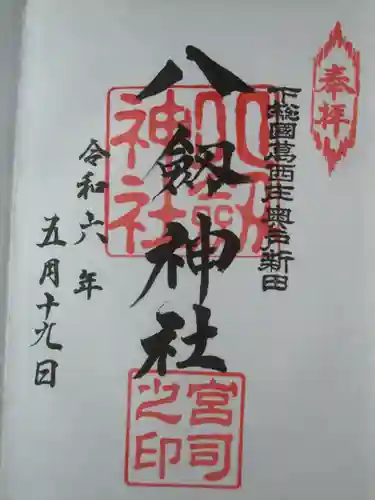 奉拝
下総國葛西庄奥戸新田
八劔神社
八劔神社
宮司之印
令和六年
五月十九日